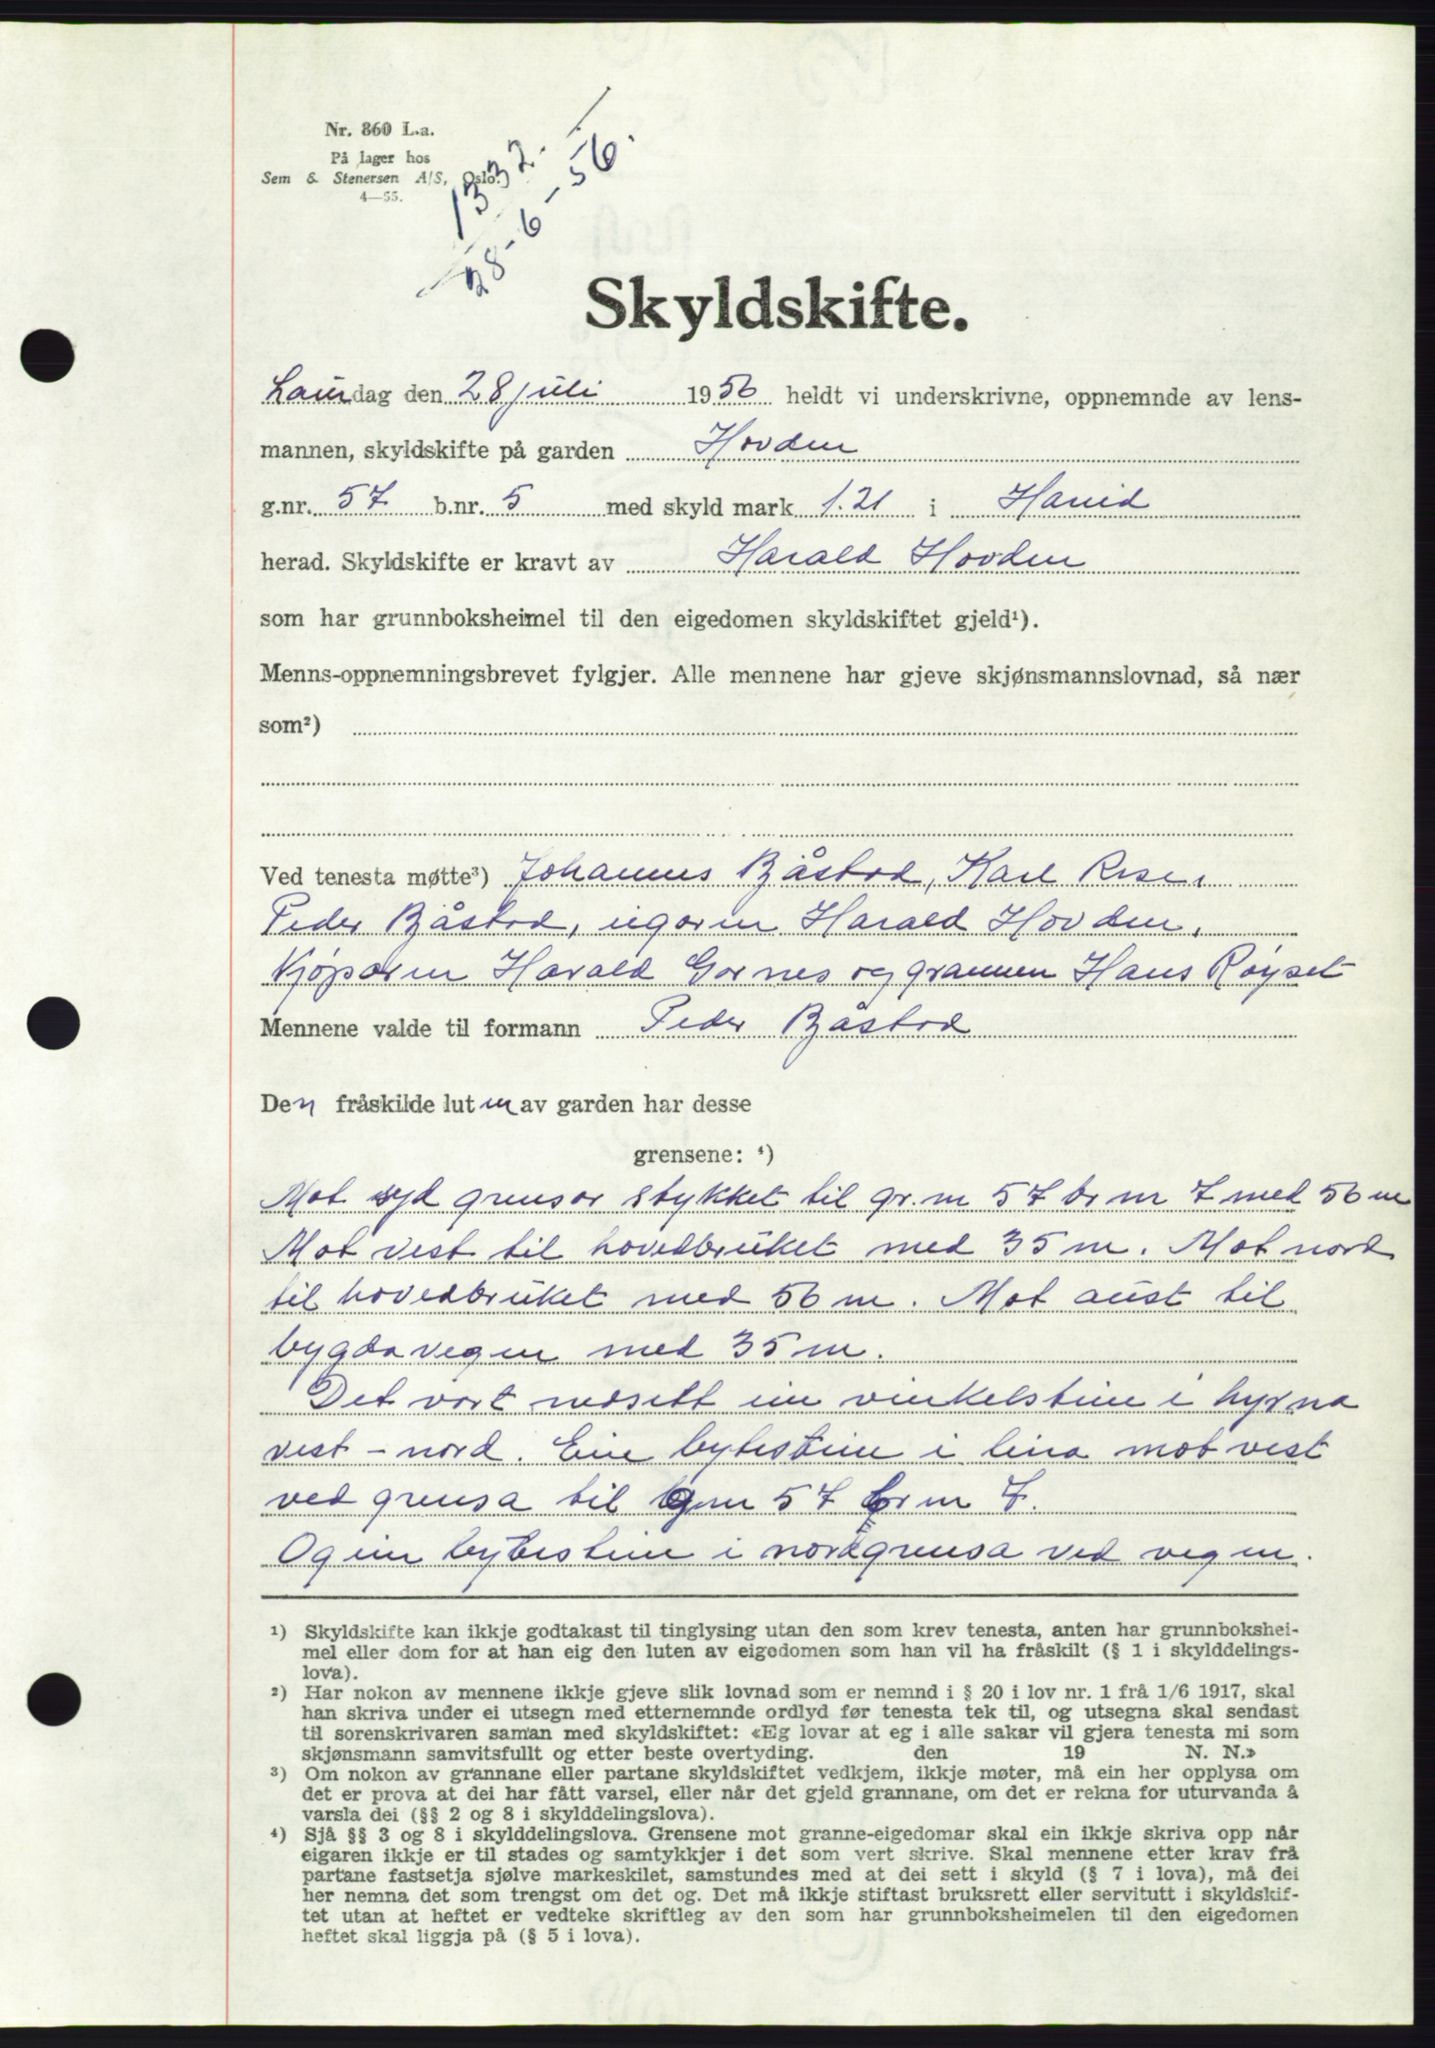 Nr. 860 L.a.
På lager hos
Sem & Stenersen A/S, Oslo.
4—55.
1332.
28-6-56.
Skyldskifte.
Laurdag den 28 juli 1956 heldt vi underskrivne, oppnemnde av lens-
mannen, skyldskifte på garden Hovden
g.nr. 57 b.nr. 5 med skyld mark 1.21 i Hareid
herad. Skyldskifte er kravt av Harald Hovden
som har grunnboksheimel til den eigedomen skyldskiftet gjeld¹).
Menns-oppnemningsbrevet fylgjer. Alle mennene har gjeve skjønsmannslovnad, så nær
som²)
Ved tenesta møtte³) Johannes Båstad, Karl Rise,
Peder Båstad, eigaren Harald Hovden,
Kjøparen Harald Garnes og grannen Hans Røyset
Mennene valde til formann Peder Båstad
Den fråskilde luten av garden har desse
grensene: ⁴)
Mot syd grensar stykket til gr.nr 57 br nr 7 med 56 m
Mot vest til hovedbruket med 35 m. Mot nord
til hovedbruket med 56 m. Mot aust til
bygdavegen med 35 m.
Det vart nedsett ein vinkelstein i hyrna
vest - nord. Ein bytestein i lina mot vest
ved grensa til gnr 57 br nr 7.
Og ein bytestein i nordgrensa ved vegen.
¹) Skyldskifte kan ikkje godtakast til tinglysing utan den som krev tenesta, anten har grunnbokshei-
mel eller dom for at han eig den luten av eigedomen som han vil ha fråskilt (§ 1 i skylddelings-
lova).
²) Har nokon av mennene ikkje gjeve slik lovnad som er nemnd i § 20 i lov nr. 1 frå 1/6 1917, skal
han skriva under ei utsegn med etternemnde ordlyd før tenesta tek til, og utsegna skal sendast
til sorenskrivaren saman med skyldskiftet: «Eg lovar at eg i alle sakar vil gjera tenesta mi som
skjønsmann samvitsfullt og etter beste overtyding. den 19 N. N.»
³) Om nokon av grannane eller partane skyldskiftet vedkjem, ikkje møter, må ein her opplysa om
det er prova at dei har fått varsel, eller når det gjeld grannane, om det er rekna for uturvanda å
varsla dei (§§ 2 og 8 i skylddelingslova).
⁴) Sjå §§ 3 og 8 i skylddelingslova. Grensene mot granne-eigedomar skal ein ikkje skriva opp når
eigaren ikkje er til stades og samtykkjer i det som vert skrive. Skal mennene etter krav frå
partane fastsetja sjølve markeskilet, samstundes med at dei sett i skyld (§ 7 i lova), må dei
her nemna det som trengst om det og. Det må ikkje stiftast bruksrett eller servitutt i skyldskif-
tet utan at heftet er vedteke skriftleg av den som har grunnboksheimelen til den eigedomen
heftet skal liggja på (§ 5 i lova).